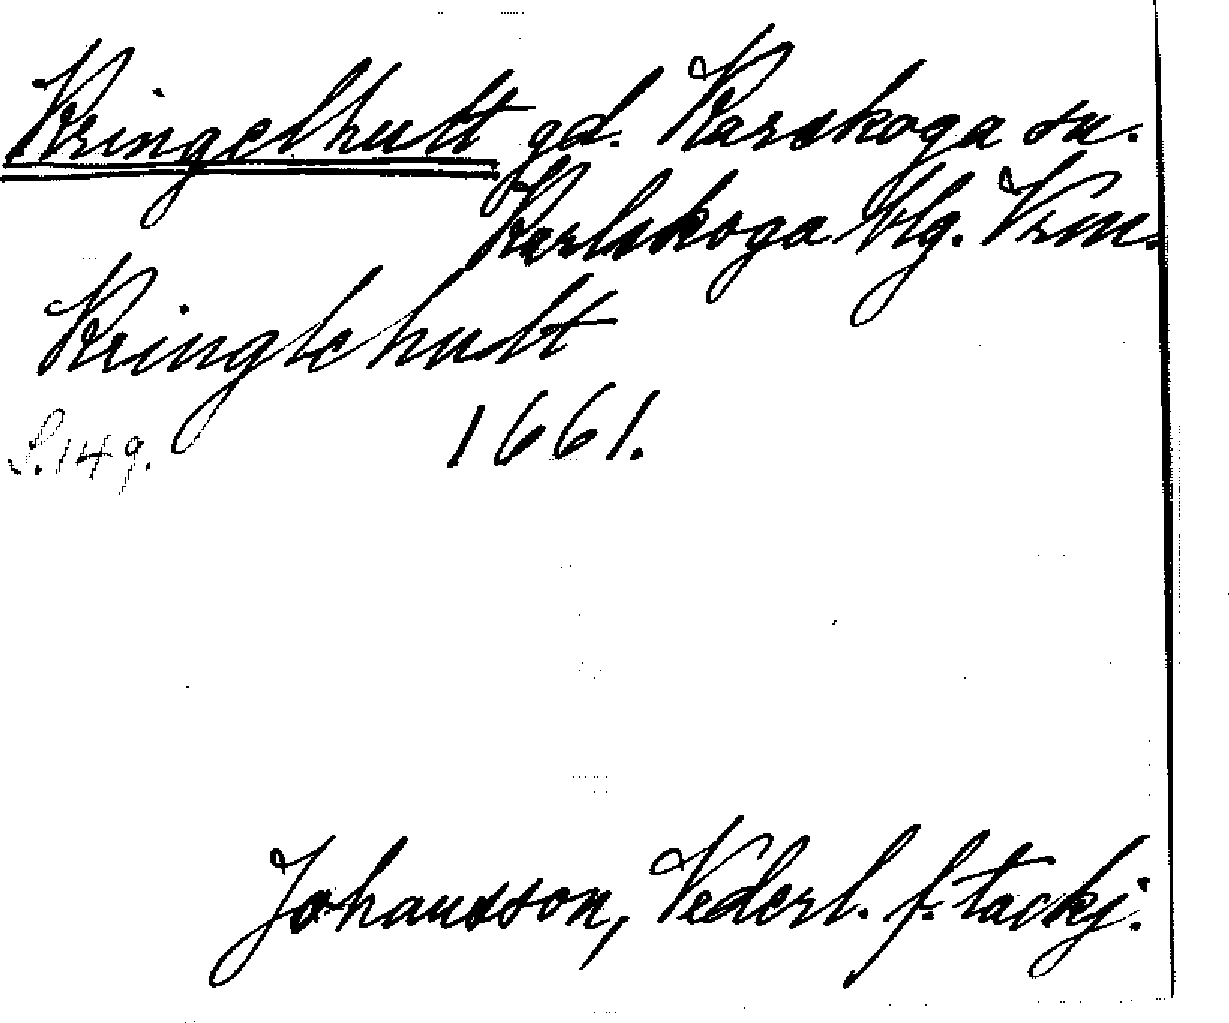 Kringelhult gd. Karskoga sn.
Karlskoga blg. Vrm.
Kringlehult
1661.
S. 149.
Johansson, Vederl. f. tackj.